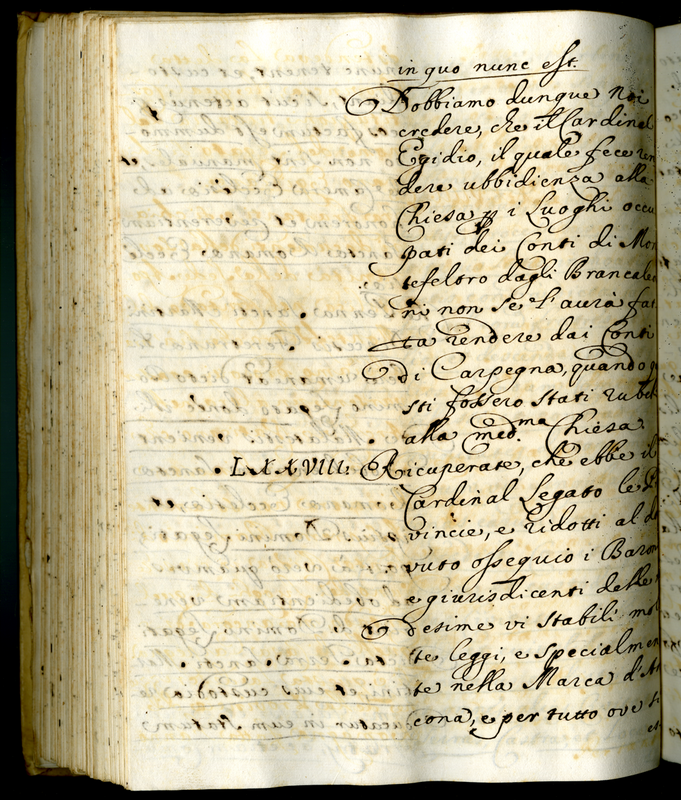 in quo nunc est.
Dobbiamo dunque noi
credere, che il Cardinal
Egidio, il quale fece ren
dere ubbidienza alla
Chiesa p i Luoghi occu
pati dei Conti di Mon
tefeltro dagli Brancale
ni non se l'aurà fat
ta rendere dai Conti
di Carpegna, quando q
sti fossero stati rubel
alla med.ma Chiesa.
LXXVIII: Ricuperate, che ebbe il
Cardinal Legato le P
vincie, e ridotti al do
vuto ossequio i Baron
e giurisdicenti delle
desime vi stabilì mol
te leggi, e specialmen
te nella Marca d'An
cona, e per tutto ove si
es